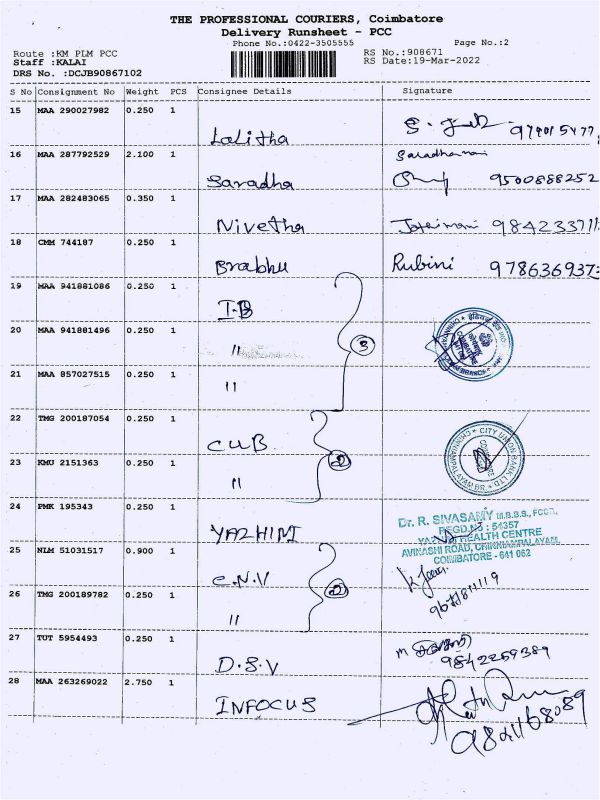 THE PROFESSIONAL COURIERS, Coimbatore
Delivery Runsheet - PCC
Phone No.:0422-3505555 Page No.:2
Route :KM PLM PCC RS No.:908671
Staff :KALAI RS Date:19-Mar-2022
DRS No. :DCJB90867102
S No Consignment No Weight PCS Consignee Details Signature
15 MAA 290027982 0.250 1
Lalitha
16 MAA 287792529 2.100 1 Saradhamani
Saradha 9500888252
17 MAA 282483065 0.350 1
Nivetha 984233711
18 CMM 744187 0.250 1
Prabhu Rubini 978636937
19 MAA 941881086 0.250 1
I.B
20 MAA 941881496 0.250 1
" 3
21 MAA 857027515 0.250 1
"
22 TMG 200187054 0.250 1
CUB CITY UNION BANK LTD
23 KMU 2151363 0.250 1 2
"
24 PMK 195343 0.250 1
YAZHINI
Dr. R. SIVASAMY M.B.B.S.,
REGD.NO: 54357
HEALTH CENTRE
AVINASHI ROAD, CHINNIAMPALAYAM,
COIMBATORE - 641 062
25 NLM 51031517 0.900 1
C.N.V
26 TMG 200189782 0.250 1 2
"
27 TUT 5954493 0.250 1
D.S.V 9842259389
28 MAA 263269022 2.750 1
INFOCUS